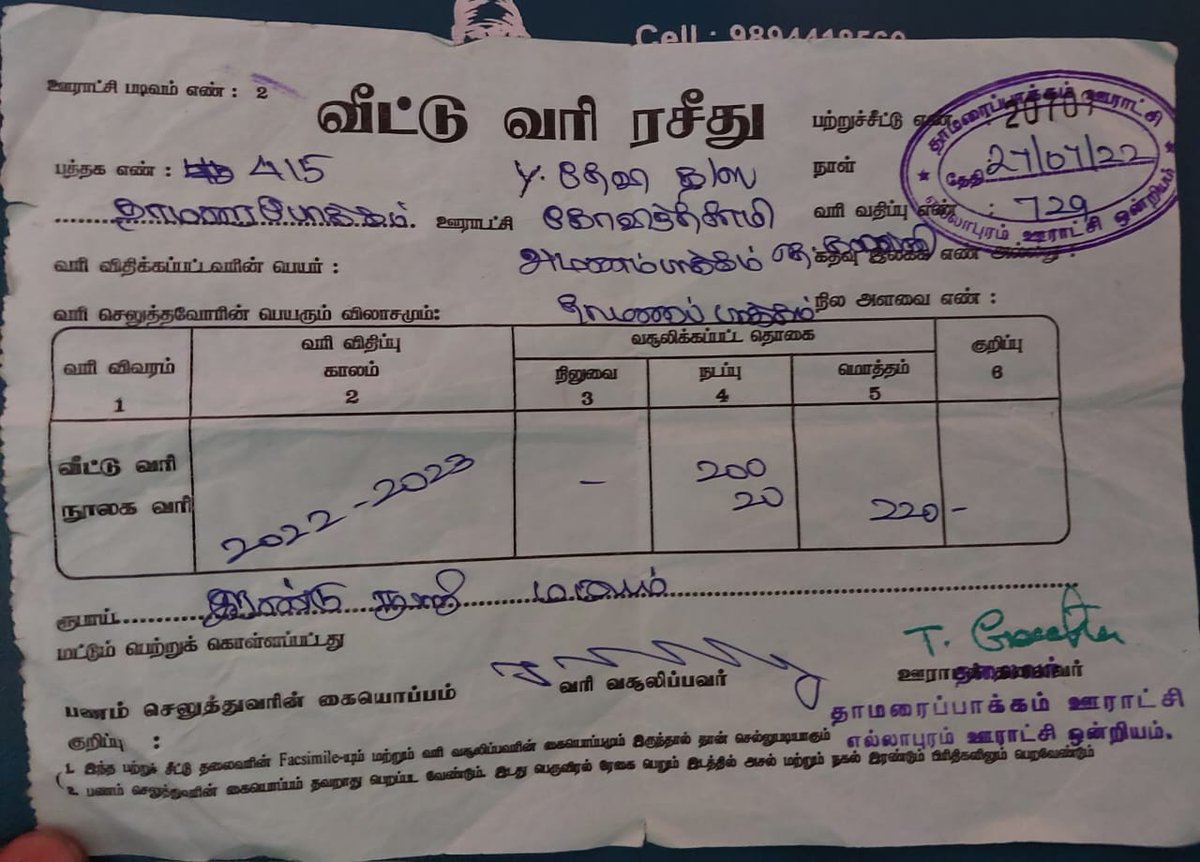 Cell : 9894418560
ஊராட்சி படிவம் எண் : 2
வீட்டு வரி ரசீது
பற்றுச்சீட்டு எண் : 20707
புத்தக எண் : 415
நாள் 27/07/22
ஊராட்சி
வரி வதிப்பு எண் : 729
வரி விதிக்கப்பட்டவரின் பெயர் :
கதவு இலக்க எண் அல்லது :
வரி செலுத்தவோரின் பெயரும் விலாசமும்:
நில அளவை எண் :
தாமரைப்பாக்கம் ஊராட்சி
தேதி
எல்லாபுரம் ஊராட்சி ஒன்றியம்
வரி விவரம் வரி விதிப்பு காலம் வசூலிக்கப்பட்ட தொகை குறிப்பு
நிலுவை நடப்பு மொத்தம்
1 2 3 4 5 6
வீட்டு வரி 2022-2023 - 200
நூலக வரி 20 220 -
ரூபாய் இரண்டு நூறு
மட்டும் பெற்றுக் கொள்ளப்பட்டது
பணம் செலுத்துவரின் கையொப்பம்
வரி வசூலிப்பவர்
தாமரைப்பாக்கம் ஊராட்சி
எல்லாபுரம் ஊராட்சி ஒன்றியம்.
குறிப்பு :
1. இந்த பற்றுச் சீட்டு தலைவரின் Facsimile-யும் மற்றும் வரி வசூலிப்பவரின் கையொப்பமும் இருந்தால் தான் செல்லுபடியாகும்
2. பணம் செலுத்துவரின் கையொப்பம் தவறாது பெறப்பட வேண்டும். இடது பெருவிரல் ரேகை பெறும் இடத்தில் அசல் மற்றும் நகல் இரண்டும் பிரிதிகளிலும் பெறவேண்டும்